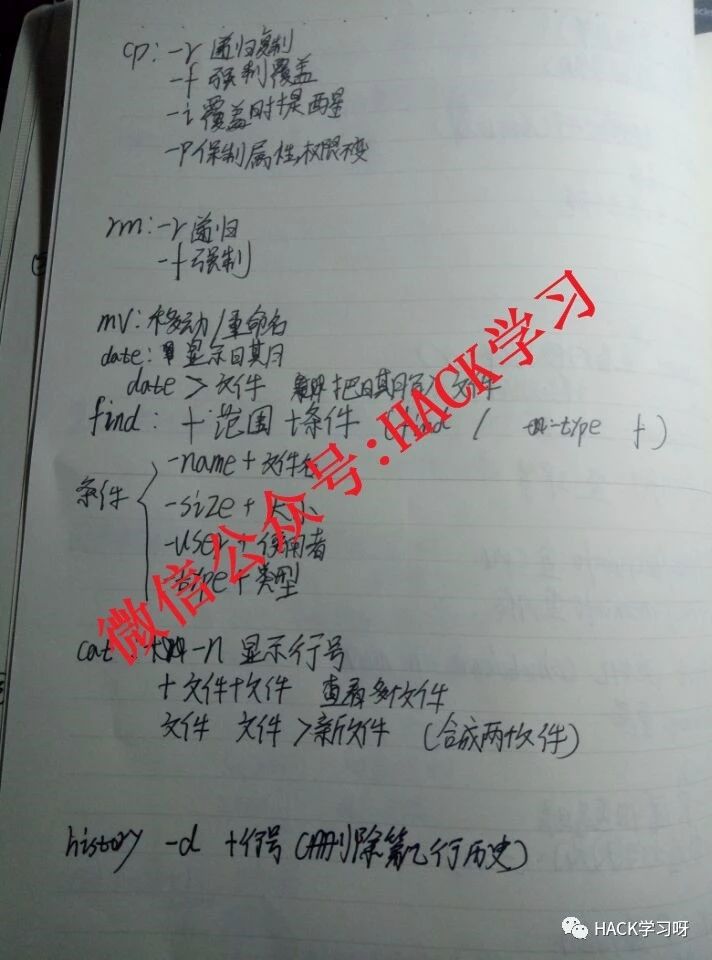 cp: -r 递归复制
-f 强制覆盖
-i 覆盖时提醒
-p 保制属性,权限不变
rm: -r 递归
-f 强制
mv: 移动/重命名
date: 显示日期
date > 文件 把日期写入文件
find: +范围+条件 (find / -type f)
条件
-name + 文件名
-size + 大小
-user + 使用者
-type + 类型
cat: -n 显示行号
+文件+文件 查看多个文件
文件 文件>新文件 (合成两个文件)
history -d +行号 (删除第几行历史)
微信公众号:HACK学习
HACK学习呀